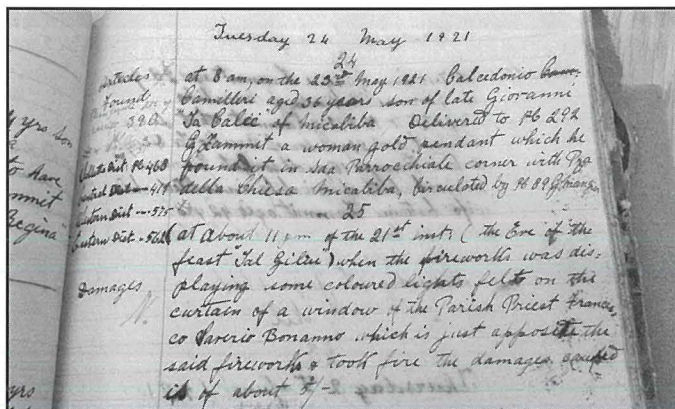 Tuesday 24 May 1921
24
Found
at 8 am, on the 23rd May 1921 Calcedonio
Camilleri aged 36 years son of late Giovanni
"Ta Calée" of Micaliba Delivered to PC 292
G. Zammit a woman gold pendant which he
found it in Sda Parrocchiale corner with Pza
della Chiesa Micaliba, Circulated by PC 89 G.
Dist. PC 468
25
at about 11 pm of the 21st inst; (the Eve of the
feast "Tal Gilju") when the fireworks was dis=
Damages
playing some coloured lights felt on the
curtain of a window of the Parish Priest Frances=
co Saverio Bonanno which is just apposite the
said fireworks & took fire the damages caused
is of about 5/-
yrs son
to have
Regina"
yrs